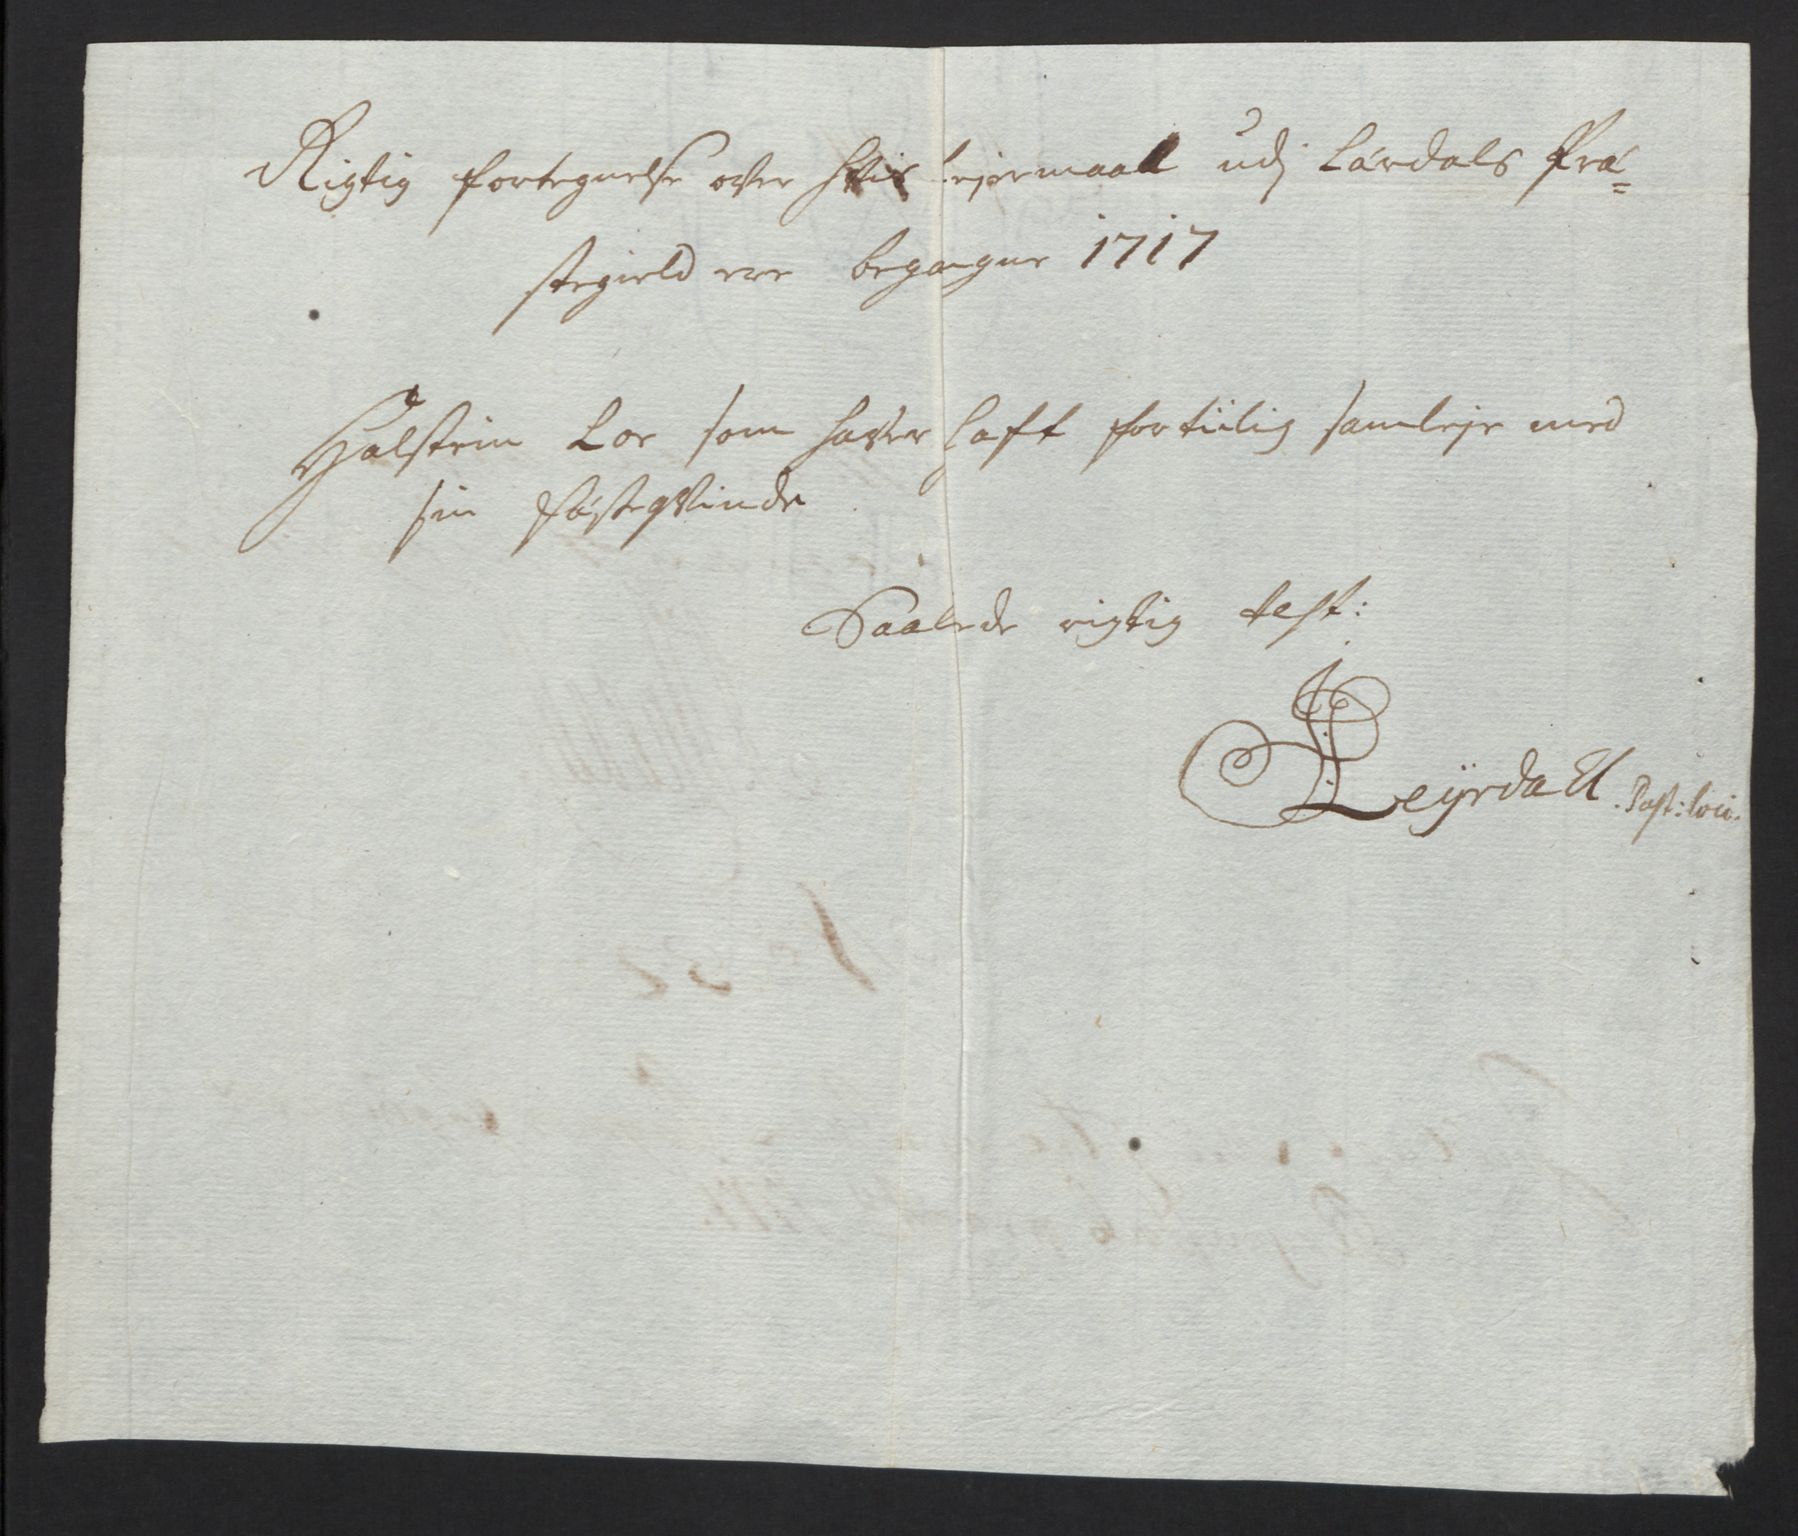 Rigtig fortegnelse over hvis lejermaal udj Lårdals Præ=
stegield ere begangne 1717
Halstein Loe som haver haft fortiilig samleje med
sin fæsteqvinde
Saalede rigtig test:
Leÿrdall. Past: loci.